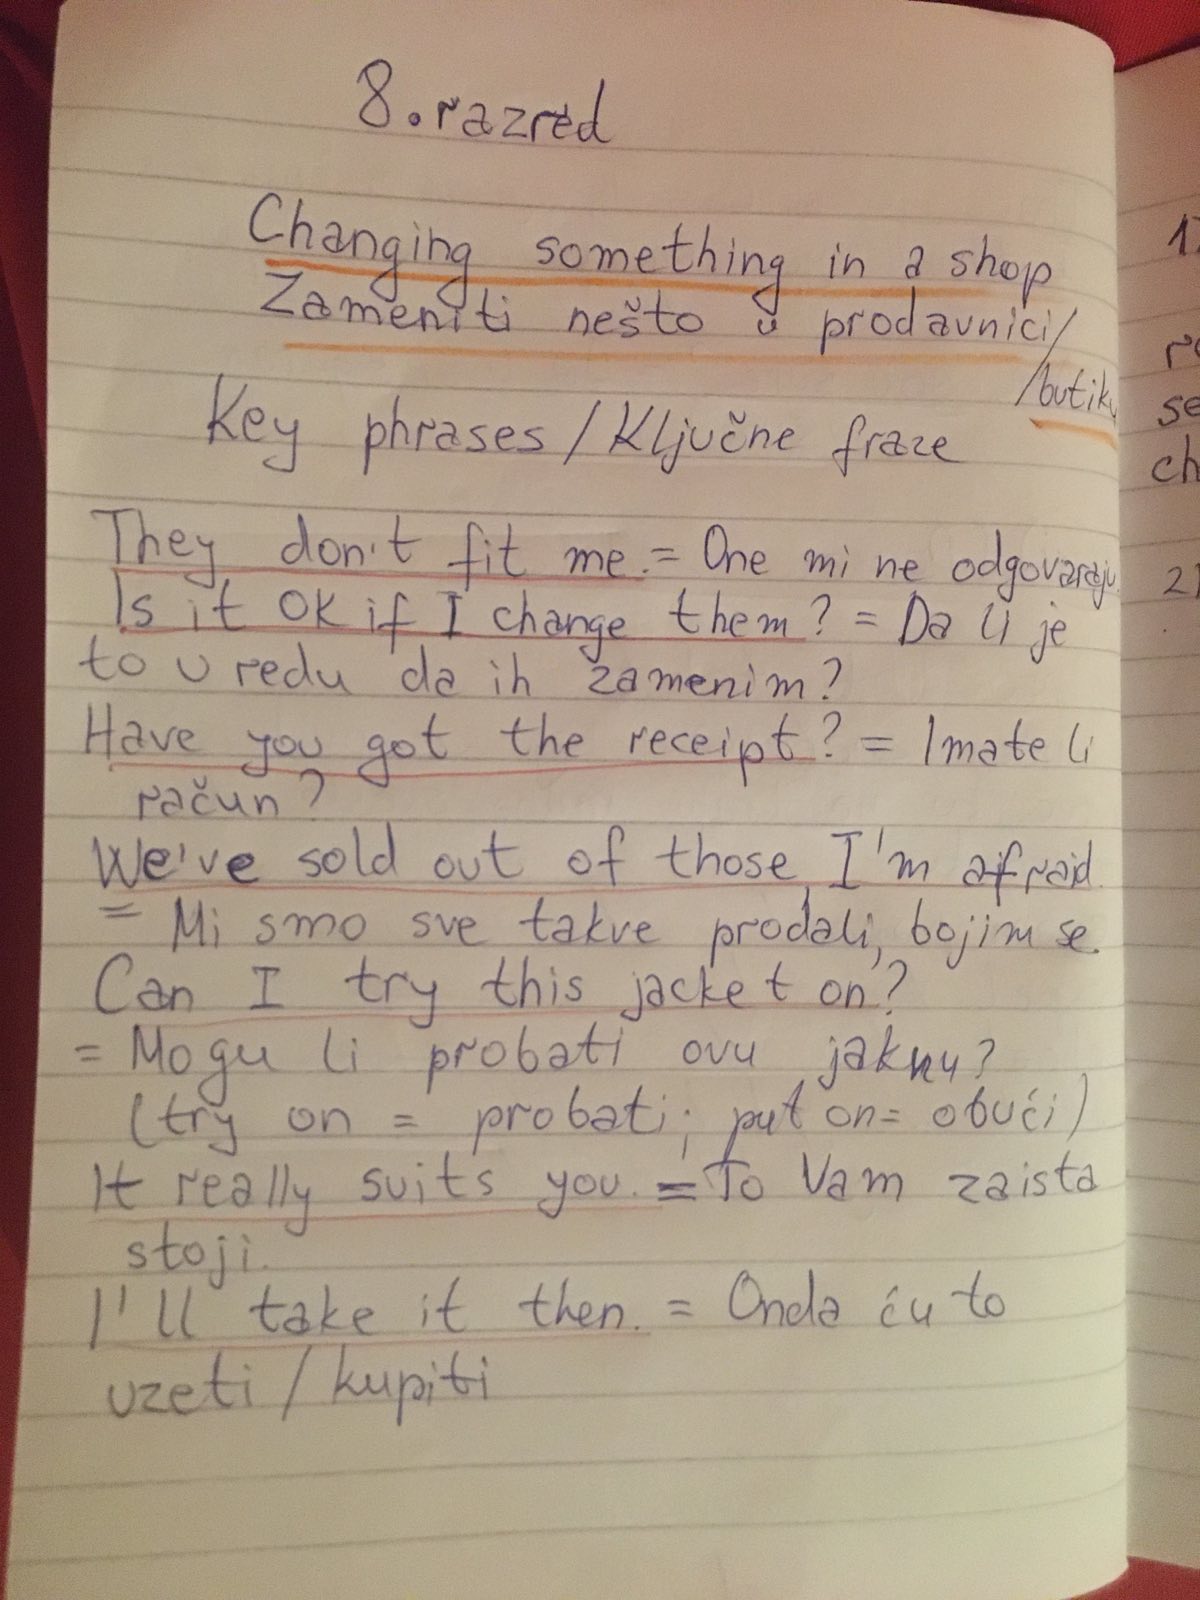 8. razred
Changing something in a shop
Zameniti nešto u prodavnici/
/butiku
Key phrases / Ključne fraze
They don't fit me. = One mi ne odgovaraju.
Is it OK if I change them? = Da li je
to u redu da ih zamenim?
Have you got the receipt? = Imate li
račun?
We've sold out of those, I'm afraid.
= Mi smo sve takve prodali, bojim se.
Can I try this jacket on?
= Mogu li probati ovu jaknu?
(try on = probati; put on = obući)
It really suits you. = To Vam zaista
stoji.
I'll take it then. = Onda ću to
uzeti / kupiti
se
ch
2)